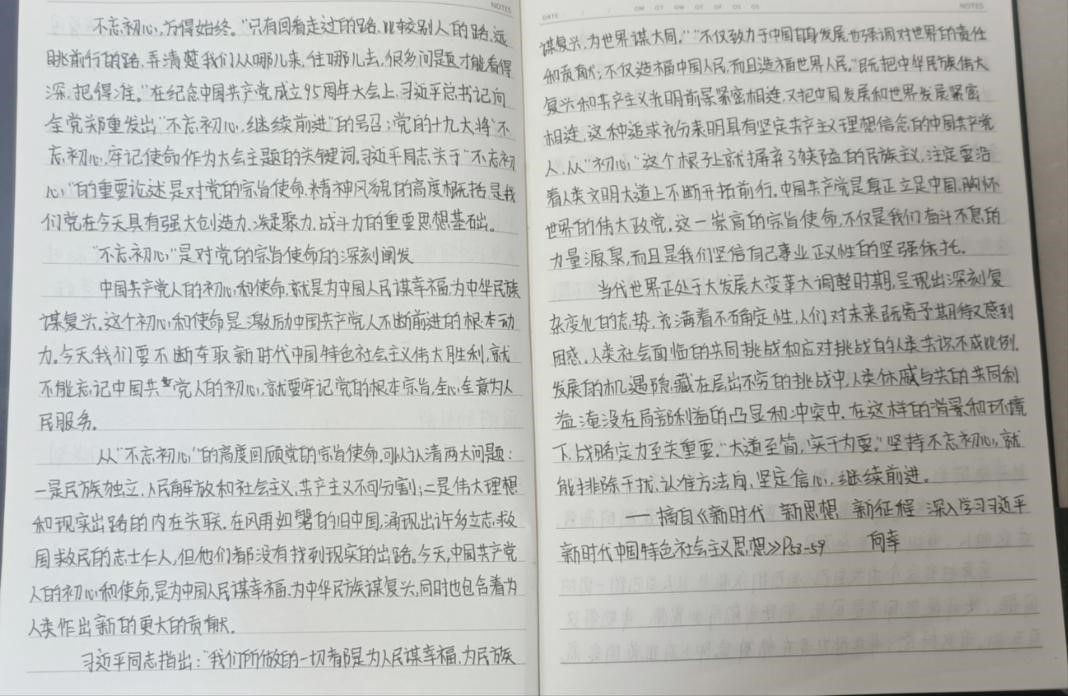 NOTES
不忘初心,方得始终。"只有回看走过的路,比较别人的路,远
眺前行的路,弄清楚我们从哪儿来,往哪儿去,很多问题才能看得
深,把得准。"在纪念中国共产党成立95周年大会上,习近平总书记向
全党郑重发出"不忘初心,继续前进"的号召;党的十九大将"不
忘初心,牢记使命"作为大会主题的关键词。习近平同志关于"不忘初
心"的重要论述是对党的宗旨使命、精神风貌的高度概括,是我
们党在今天具有强大创造力、凝聚力、战斗力的重要思想基础。
"不忘初心"是对党的宗旨使命的深刻阐发
中国共产党人的初心和使命,就是为中国人民谋幸福,为中华民族
谋复兴。这个初心和使命是激励中国共产党人不断前进的根本动
力。今天我们要不断夺取新时代中国特色社会主义伟大胜利,就
不能忘记中国共产党人的初心,就要牢记党的根本宗旨,全心全意为人
民服务。
从"不忘初心"的高度回顾党的宗旨使命,可以认清两大问题:
一是民族独立、人民解放和社会主义、共产主义不可分割;二是伟大理想
和现实出路的内在关联。在风雨如磐的旧中国,涌现出许多立志救
国救民的志士仁人,但他们都没有找到现实的出路。今天,中国共产党
人的初心和使命,是为中国人民谋幸福、为中华民族谋复兴,同时也包含着为
人类作出新的更大的贡献。
习近平同志指出:"我们所做的一切都是为人民谋幸福,为民族
DATE
NOTES
谋复兴,为世界谋大同。""不仅致力于中国自身发展,也强调对世界的责任
和贡献;不仅造福中国人民,而且造福世界人民。"既把中华民族伟大
复兴和共产主义光明前景紧密相连,又把中国发展和世界发展紧密
相连,这种追求充分表明具有坚定共产主义理想信念的中国共产党
人,从"初心"这个根子上就摒弃了狭隘的民族主义,注定要沿
着人类文明大道上不断开拓前行。中国共产党是真正立足中国,胸怀
世界的伟大政党。这一崇高的宗旨使命,不仅是我们奋斗不息的
力量源泉,而且是我们坚信自己事业正义性的坚强依托。
当代世界正处于大发展大变革大调整时期,呈现出深刻复
杂变化的态势,充满着不确定性,人们对未来既寄予期待又感到
困惑。人类社会面临的共同挑战和应对挑战的人类共识不成比例。
发展的机遇隐藏在层出不穷的挑战中,人类休戚与共的共同利
益,淹没在局部利益的凸显和冲突中。在这样的背景和环境
下,战略定力至关重要。"大道至简,实干为要。"坚持不忘初心,就
能排除干扰,认准方法向,坚定信心,继续前进。
——摘自《新时代 新思想 新征程 深入学习习近平
新时代中国特色社会主义思想》P53-59